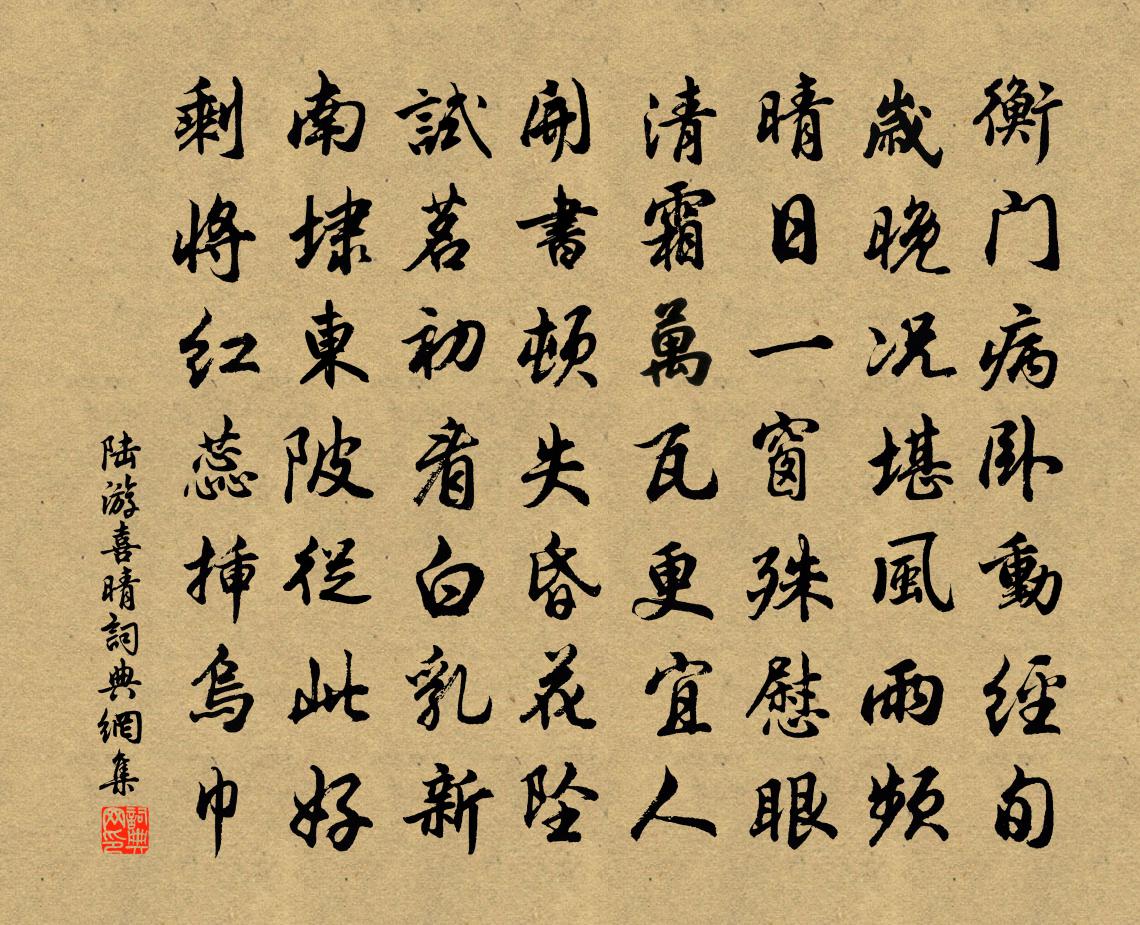 衡门病卧動經旬
歲晚况堪風雨频
晴日一窗殊慰眼
清霜萬瓦更宜人
開書頓失昏花墜
試茗初看白乳新
南埭東陂從此好
剩将红蕊揷烏巾
陆游喜晴詞典網集
詞典网印